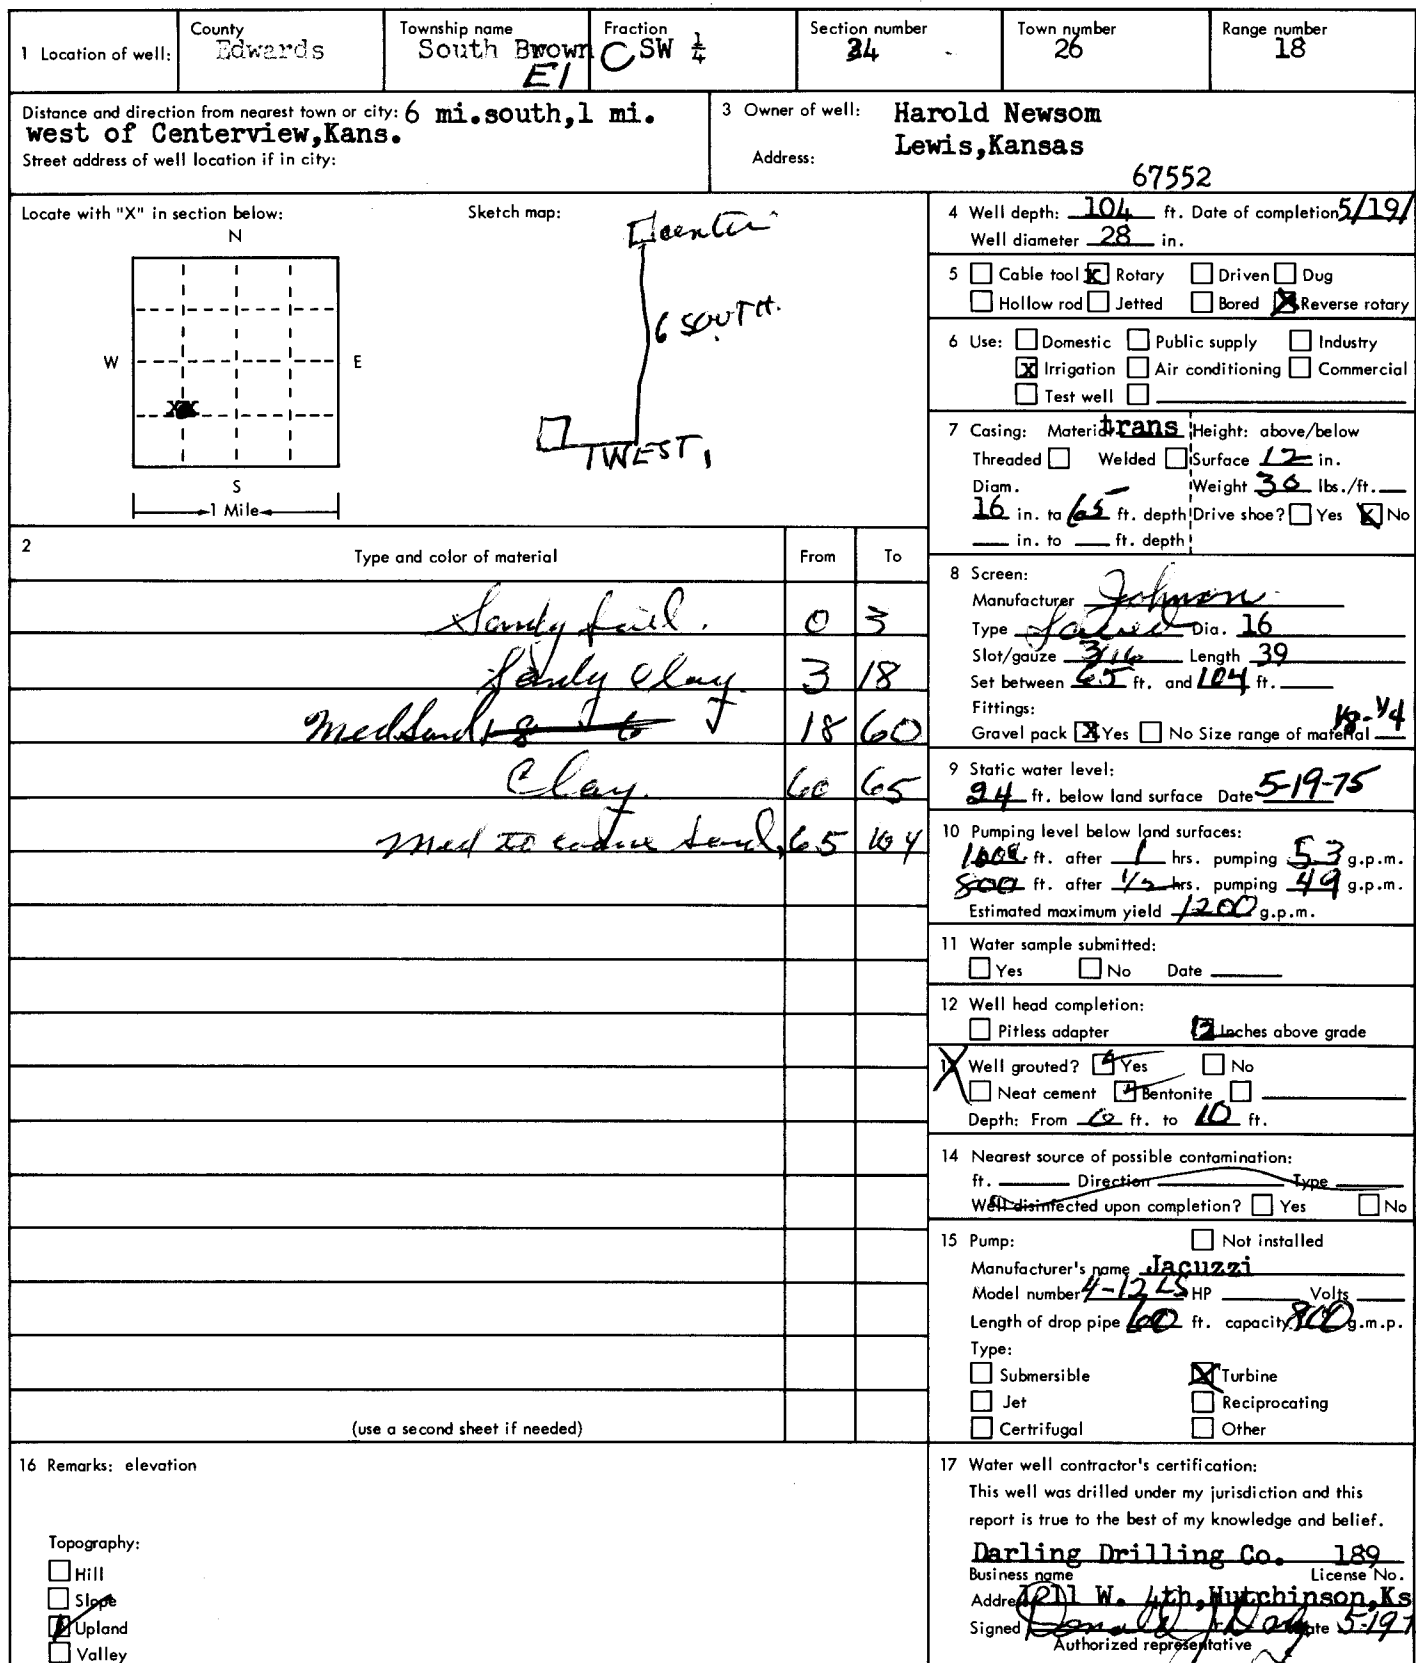 1 Location of well:
County
Edwards
Township name
South Brown
E1
Fraction
C SW 1/4
Section number
34
Town number
26
Range number
18
Distance and direction from nearest town or city: 6 mi.south,1 mi.
west of Centerview,Kans.
Street address of well location if in city:
3 Owner of well: Harold Newsom
Address: Lewis,Kansas
67552
Locate with "X" in section below:
N
W
E
S
1 Mile
Sketch map:
center
6 SOUTH.
1 WEST
4 Well depth: 104 ft. Date of completion 5/19/
Well diameter 28 in.
5 Cable tool X Rotary Driven Dug
Hollow rod Jetted Bored X Reverse rotary
6 Use: Domestic Public supply Industry
X Irrigation Air conditioning Commercial
Test well
7 Casing: Material trans Height: above/below
Threaded Welded Surface 12 in.
Diam. Weight 30 lbs./ft.
16 in. to 65 ft. depth Drive shoe? Yes X No
in. to ft. depth
2 Type and color of material From To
Sandy Soil. 0 3
Sandy Clay 3 18
Med Sand 18 60
Clay. 60 65
Med to coarse sand, 65 104
(use a second sheet if needed)
8 Screen:
Manufacturer Johnson
Type Dia. 16
Slot/gauze 3/16 Length 39
Set between 65 ft. and 104 ft.
Fittings:
Gravel pack X Yes No Size range of material 1/8-1/4
9 Static water level:
24 ft. below land surface Date 5-19-75
10 Pumping level below land surfaces:
1000 ft. after 1 hrs. pumping 53 g.p.m.
800 ft. after 1/2 hrs. pumping 49 g.p.m.
Estimated maximum yield 1200 g.p.m.
11 Water sample submitted:
Yes No Date
12 Well head completion:
Pitless adapter 12 Inches above grade
13 Well grouted? Yes No
Neat cement Bentonite
Depth: From 0 ft. to 10 ft.
14 Nearest source of possible contamination:
ft. Direction Type
Well disinfected upon completion? Yes No
15 Pump: Not installed
Manufacturer's name Jacuzzi
Model number 4-12 LS HP Volts
Length of drop pipe 60 ft. capacity 800 g.m.p.
Type:
Submersible X Turbine
Jet Reciprocating
Certrifugal Other
16 Remarks: elevation
Topography:
Hill
Slope
Upland
Valley
17 Water well contractor's certification:
This well was drilled under my jurisdiction and this
report is true to the best of my knowledge and belief.
Darling Drilling Co. 189
Business name License No.
Address 1211 W. 4th,Hutchinson,Ks
Signed Donald Date 5-19-7
Authorized representative